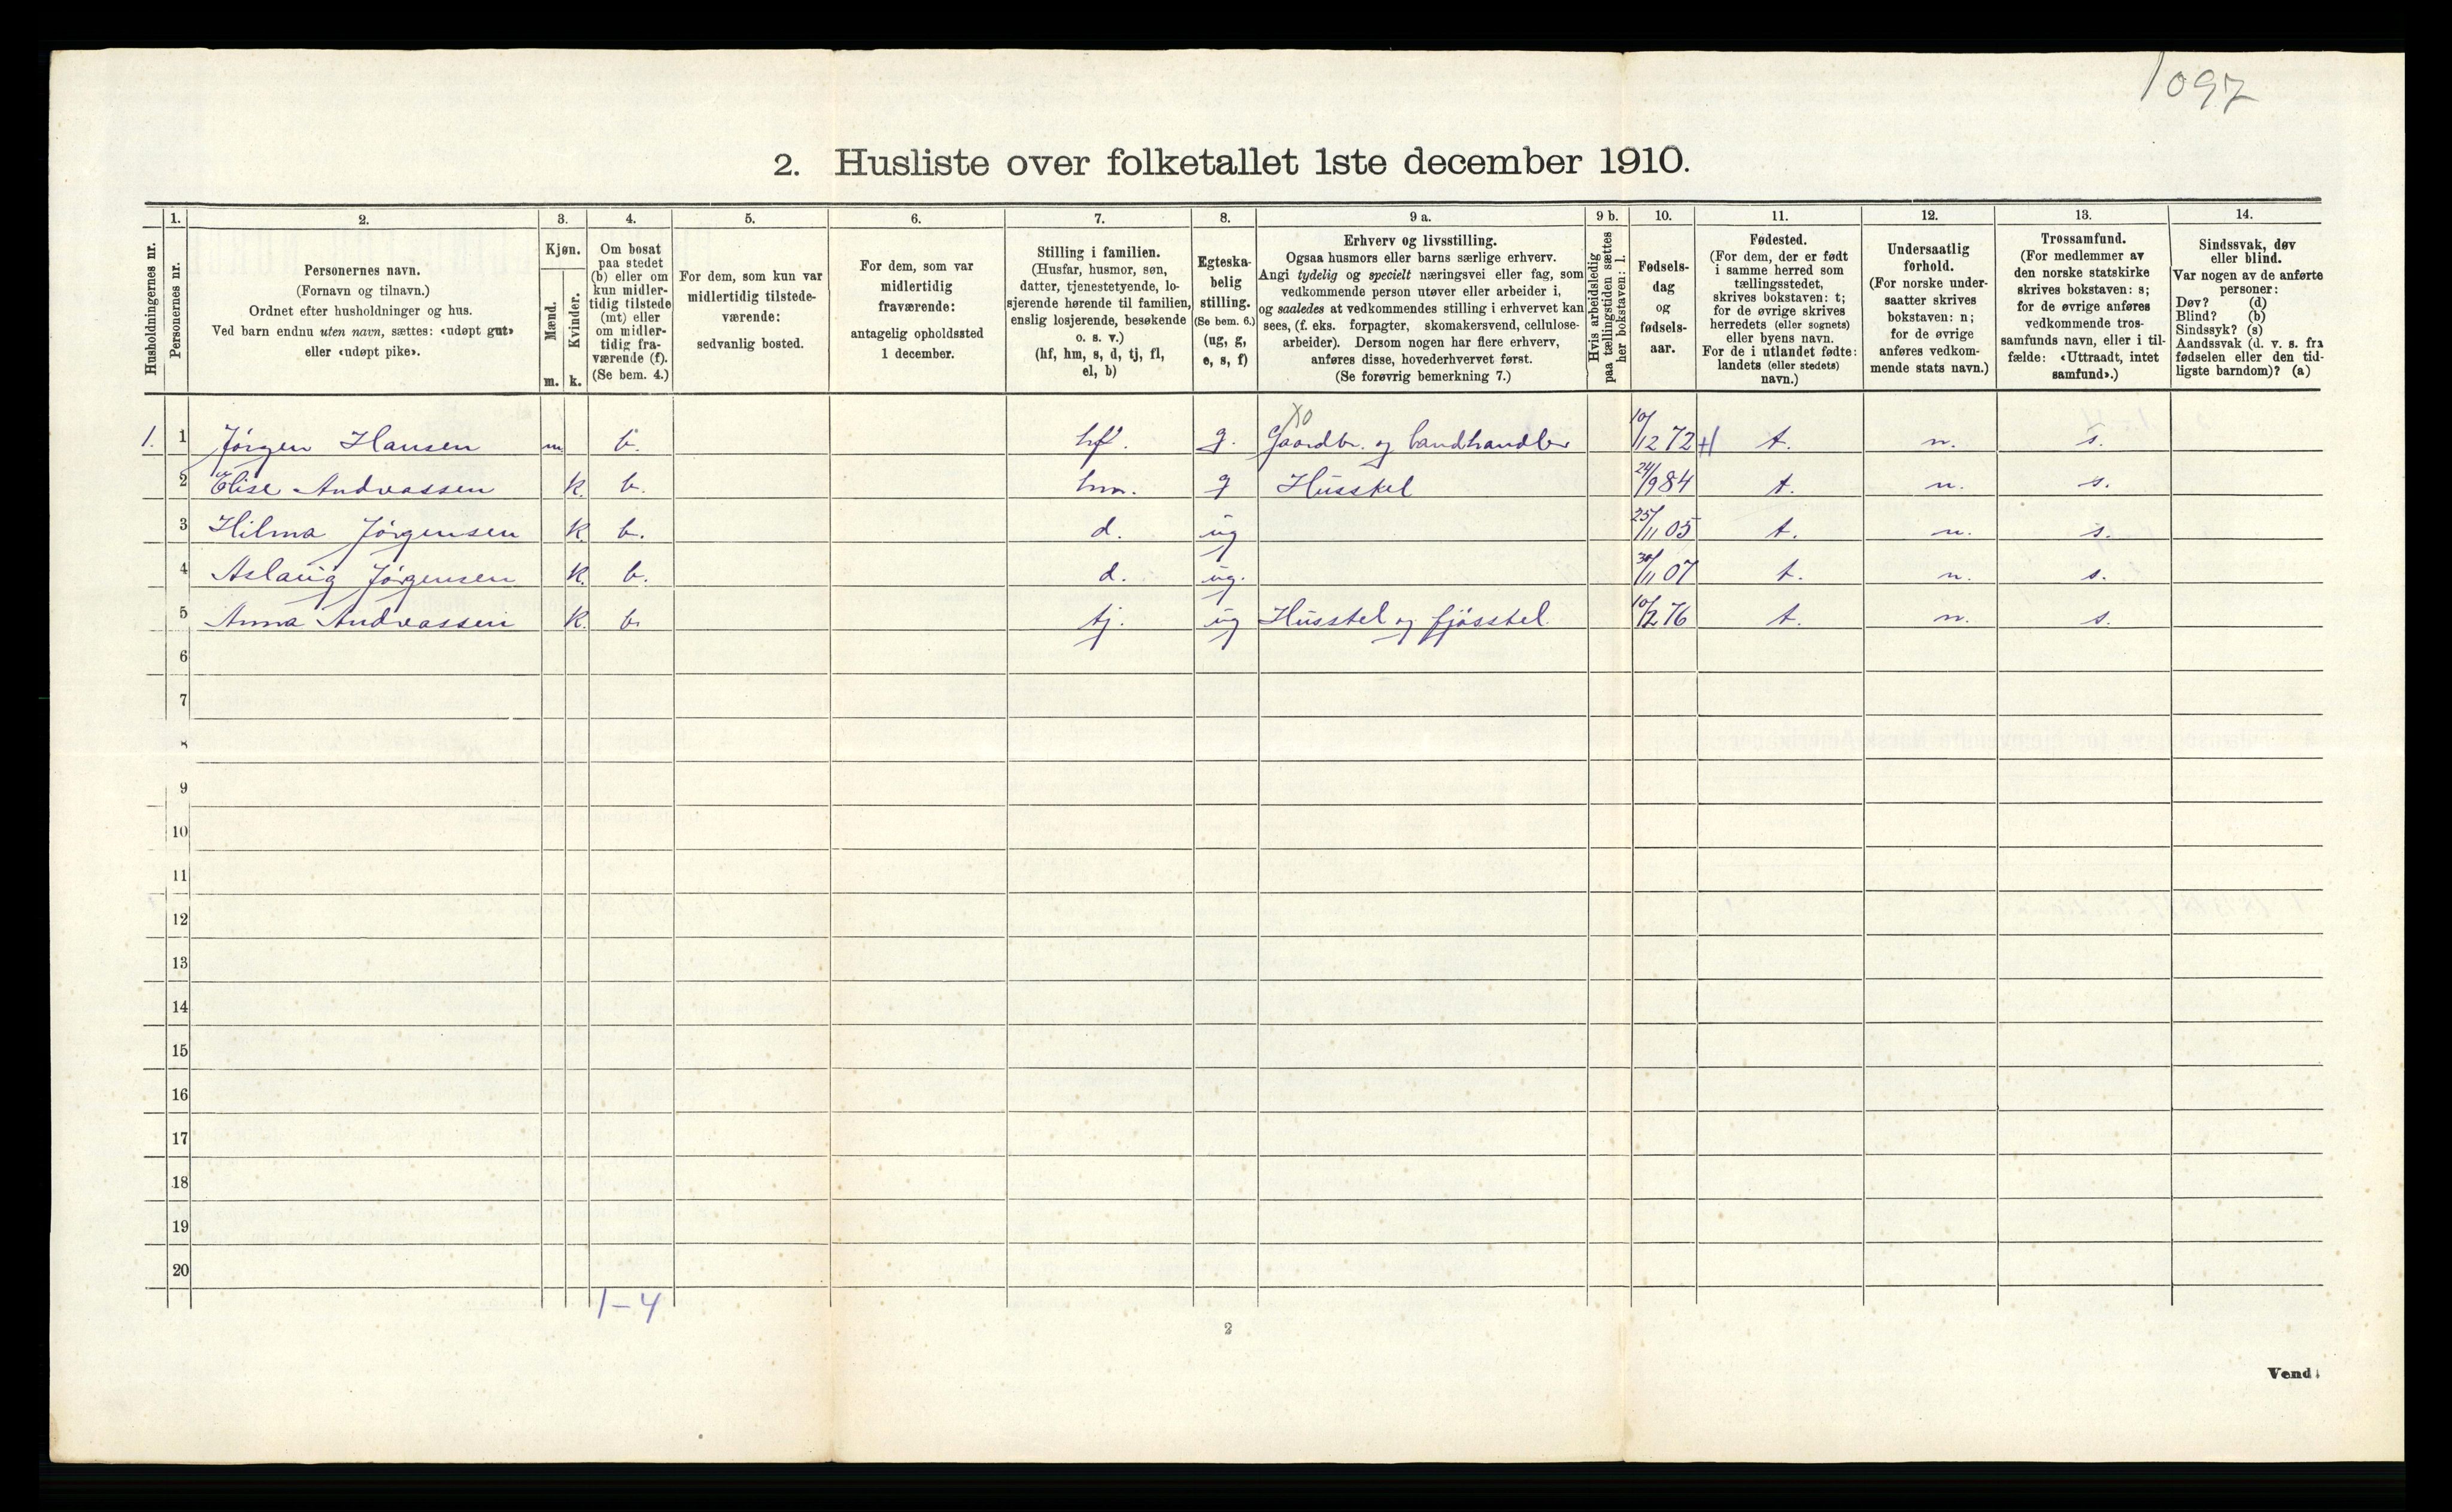 1097
2. Husliste over folketallet 1ste december 1910.
Husholdningernes nr.
1.
Personernes nr.
2.
Personernes navn.
(Fornavn og tilnavn.)
Ordnet efter husholdninger og hus.
Ved barn endnu uten navn, sættes: «udøpt gut»
eller «udøpt pike».
3.
Kjøn.
Mænd.
m.
Kvinder.
k.
4.
Om bosat
paa stedet
(b) eller om
kun midler-
tidig tilstede
(mt) eller
om midler-
tidig fra-
værende (f).
(Se bem. 4.)
5.
For dem, som kun var
midlertidig tilstede-
værende:
sedvanlig bosted.
6.
For dem, som var
midlertidig
fraværende:
antagelig opholdssted
1 december.
7.
Stilling i familien.
(Husfar, husmor, søn,
datter, tjenestetyende, lo-
sjerende hørende til familien,
enslig losjerende, besøkende
o. s. v.)
(hf, hm, s, d, tj, fl,
el, b)
8.
Egteska-
belig
stilling.
(Se bem. 6.)
(ug, g,
e, s, f)
9 a.
Erhverv og livsstilling.
Ogsaa husmors eller barns særlige erhverv.
Angi tydelig og specielt næringsvei eller fag, som
vedkommende person utøver eller arbeider i,
og saaledes at vedkommendes stilling i erhvervet kan
sees, (f. eks. forpagter, skomakersvend, cellulose-
arbeider). Dersom nogen har flere erhverv,
anføres disse, hovederhvervet først.
(Se forøvrig bemerkning 7.)
9 b.
Hvis arbeidsledig
paa tællingstiden sættes
her bokstaven: l.
10.
Fødsels-
dag
og
fødsels-
aar.
11.
Fødested.
(For dem, der er født
i samme herred som
tællingsstedet,
skrives bokstaven: t;
for de øvrige skrives
herredets (eller sognets)
eller byens navn.
For de i utlandet fødte:
landets (eller stedets)
navn.)
12.
Undersaatlig
forhold.
(For norske under-
saatter skrives
bokstaven: n;
for de øvrige
anføres vedkom-
mende stats navn.)
13.
Trossamfund.
(For medlemmer av
den norske statskirke
skrives bokstaven: s;
for de øvrige anføres
vedkommende tros-
samfunds navn, eller i til-
fælde: «Uttraadt, intet
samfund».)
14.
Sindssvak, døv
eller blind.
Var nogen av de anførte
personer:
Døv? (d)
Blind? (b)
Sindssyk? (s)
Aandssvak (d. v. s. fra
fødselen eller den tid-
ligste barndom)? (a)
X0
1. 1 Jörgen Hansen m b. hf. g. Gaardbr. og landhandler 10/12 72 t. n. s.
2 Elise Andreassen k. b. hm. g Husstel 24/9 84 t. n. s.
3 Hilma Jörgensen k. b. d. ug 25/11 05 t. n. s.
4 Aslaug Jörgensen k. b. d. ug. 30/11 07 t. n. s.
5 Anna Andreassen k. b. tj. ug Husstel og fjösstel. 10/2 76 t. n. s.
6
7
8
9
10
11
12
13
14
15
16
17
18
19
20
1-4
2
Vend!